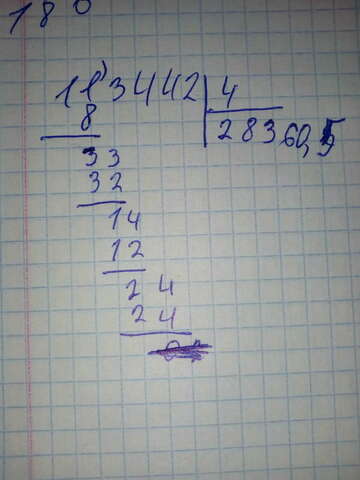 180
113442 4
8 28360,5
33
32
14
12
24
24